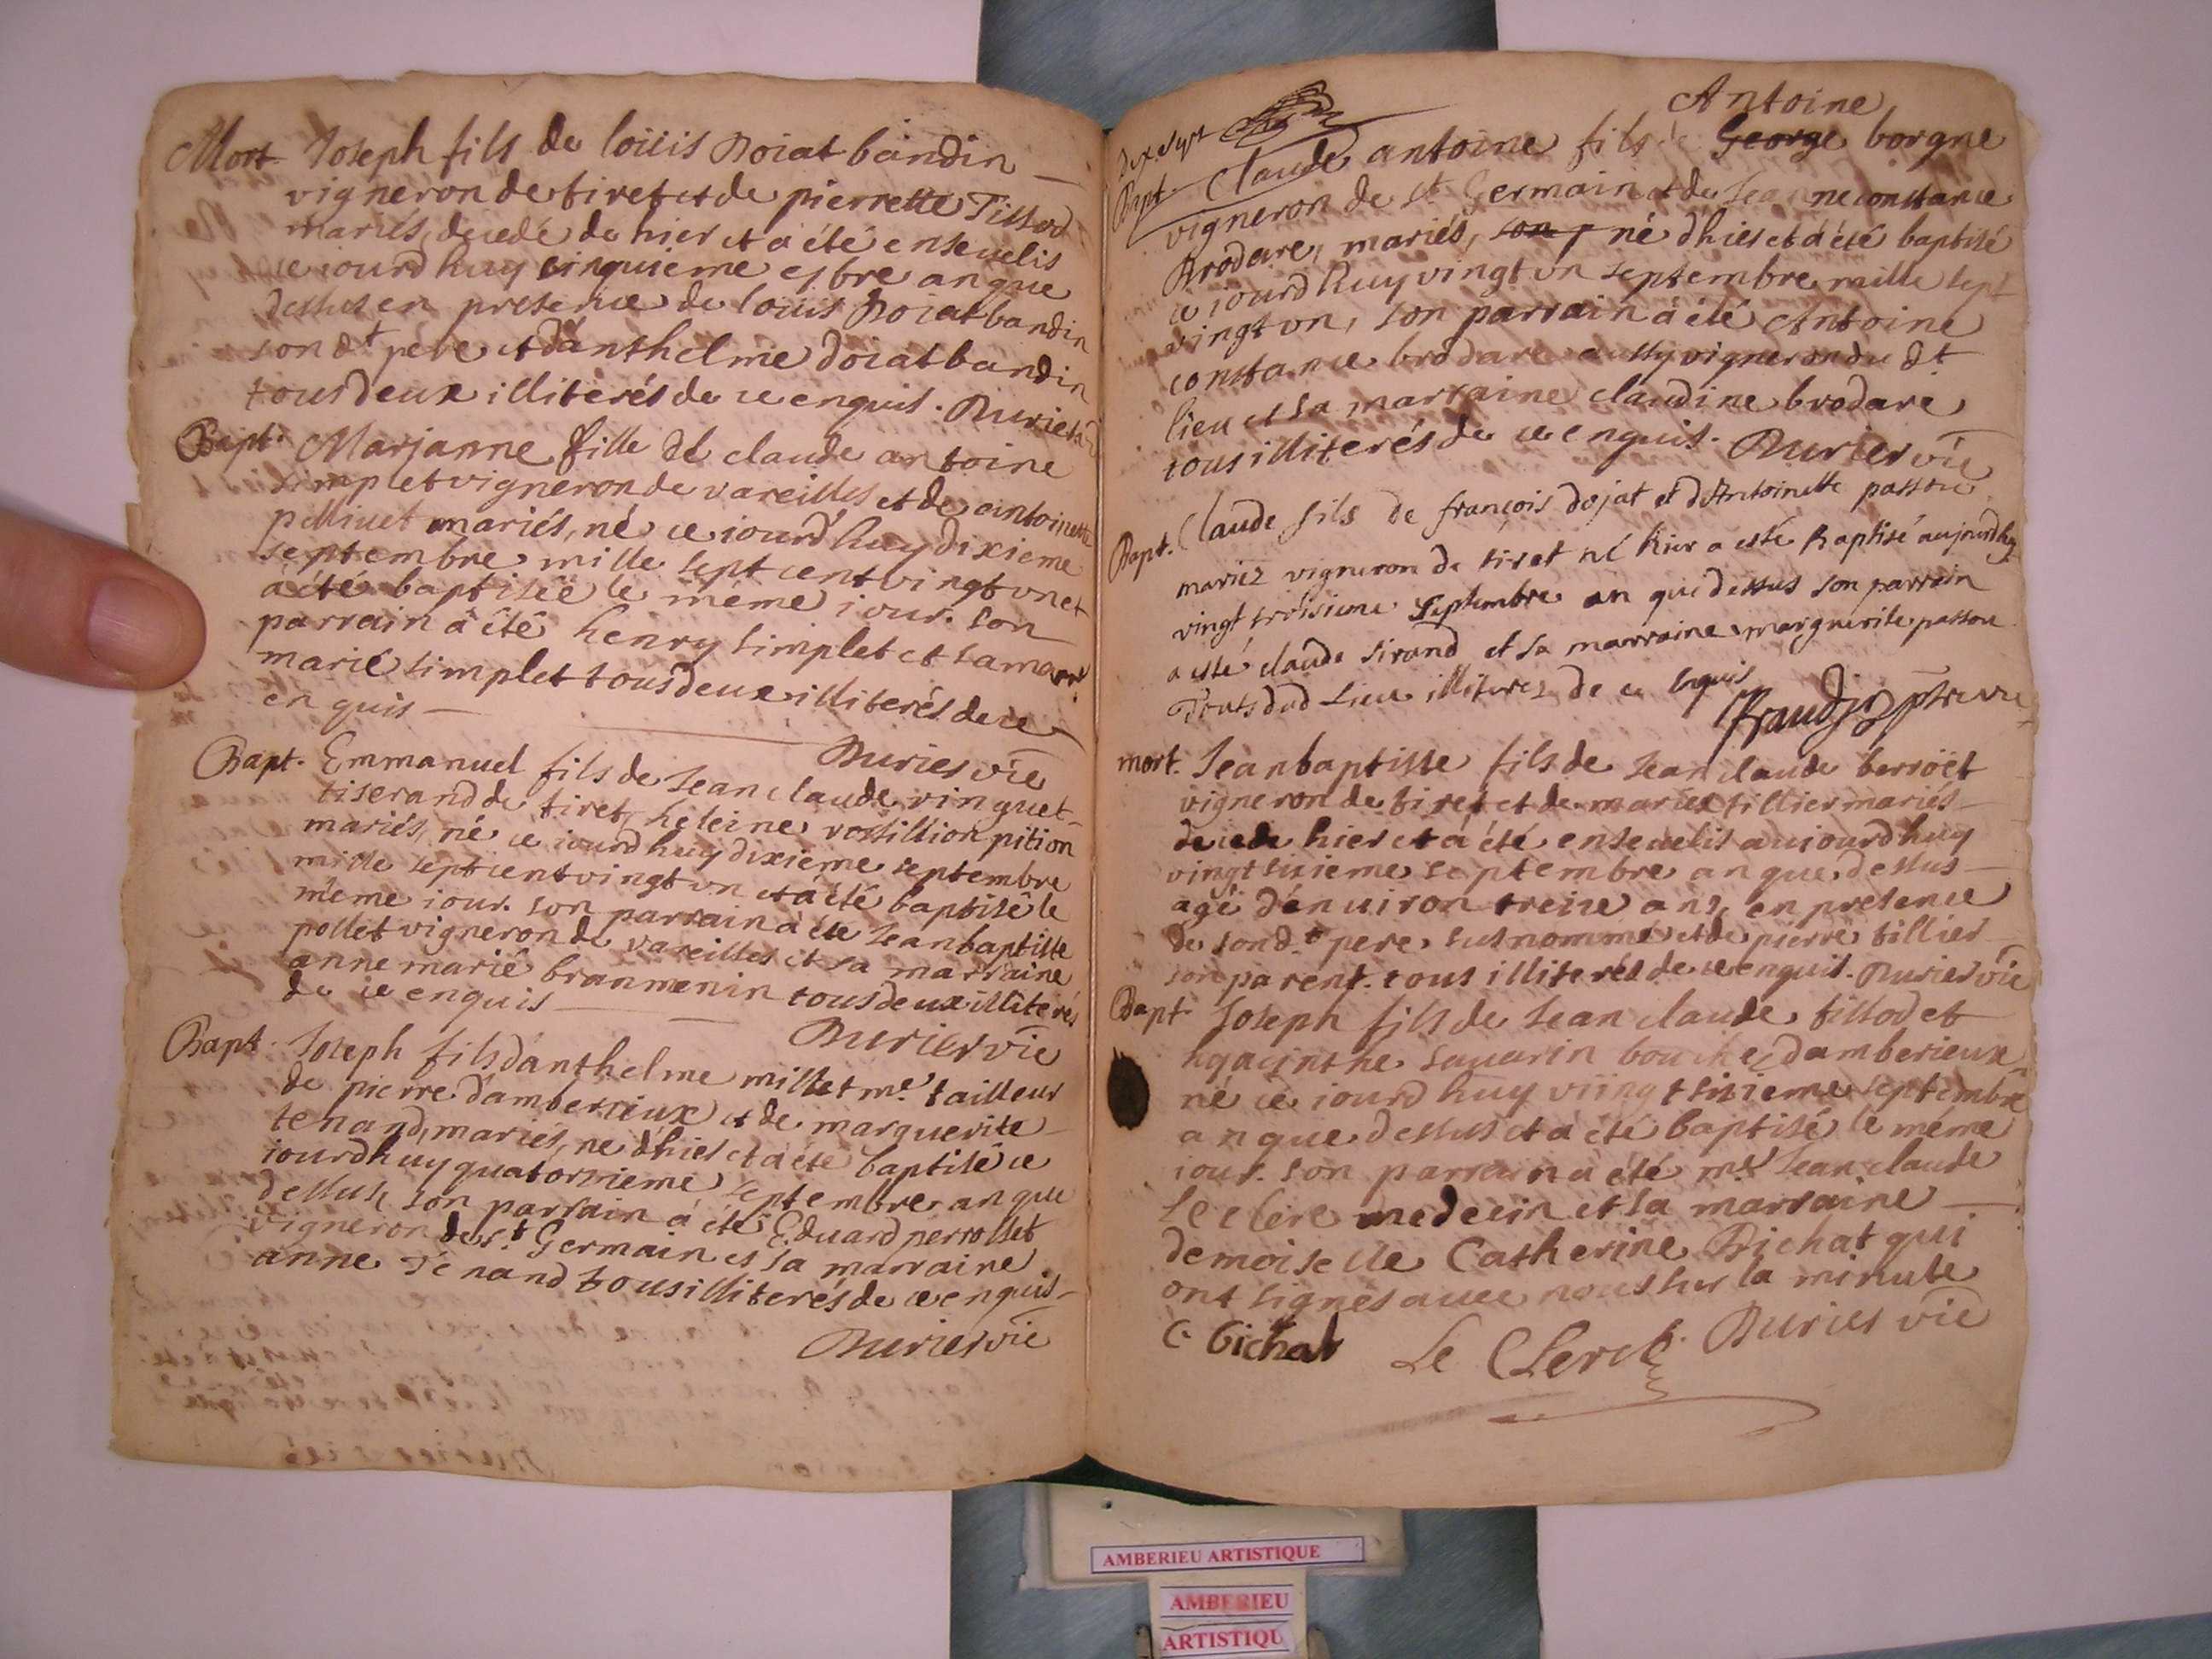 Mort Joseph fils de loüis Doiat bandin
vigneron de tiret et de pierrette Tissod
mariés, decedé de hier et a été enseuelis
ce iourd huy cinquieme 7bre an que
dessus en presence de loüis Doiat bandin
son dt pere et d'anthelme doiat bandin
tous deux illiterés de ce enquis. Durier
Bapt. Marjanne fille de claude antoine
simplet vigneron de vareilles et de antoinette
pelliuet mariés, né ce iourd huy dixieme
septembre mille sept cent vingt vn et
a été baptisée le même iour. son
parrain a été henry simplet et sa marr
marié simplet tous deux illiterés de ce
en quis
Durier vic
Bapt. Emmanuel fils de Jean claude vinguet
tiserand de tiret, heleine vorsillion pition
mariés, né ce iourd huy dixieme septembre
mille sept cent vingt vn et a été baptisé le
même iour. son parrain a été Jean baptiste
pollet vigneron de vareilles et sa marraine
anne marié branmenin tous deux illiterés
de ce enquis
Durier vic
Bapt. Joseph fils d'anthelme millet me tailleur
de pierre d'amberieux et de marguerite
tenand, mariés, né d'hier et a été baptisé ce
iourd huy quatorzieme septembre an que
dessus, son parrain a été Eduard perrollet
vigneron de st Germain et sa marraine
anne Tenand tous illiterés de ce enquis
Durier vic
Antoine
Bapt. Claude antoine fils de George borgne
vigneron de st Germain et de Jeanne constance
Brodare, mariés, son p né d'hier et a été baptisé
ce iourd huy vingt vn septembre mille sept
vingt vn, son parrain a été Antoine
constance brodare aussy vigneron du dt
lieu et sa marraine claudine brodare
tous illiterés de ce enquis. Durier vic
Bapt. Claude fils de françois dojat et d'Antoinette passou
mariez vigneron de tiret né hier a esté Baptisé aujourdhuy
vingt troisieme Septembre an que dessus son parrain
a esté claude sirand et sa marraine marguerite passou
Touts dud Lieu illiterez de ce Enquis
mort. Jean baptiste fils de Jean claude berröet
vigneron de tiret et de marie tillier mariés
decedé hier et a été enseuelis auiourd huy
vingt sixieme septembre an que dessus
agé d'enuiron treize ans, en presence
de son dt pere susnommé et de pierre tillier
son parent. tous illiterés de ce enquis. Durier vic
Bapt. Joseph fils de Jean claude tissod et
hyacinthe sauarin boucher d'amberieux
né ce iourd huy viingt sixieme septembre
an que dessus et a été baptisé le même
iour. son parrain a été mr Jean claude
le clerc medecin et la marraine
demoiselle Catherine Bichat qui
ont signés auec nous sur la minute
C. bichat Le Clerc Durier vic
AMBERIEU ARTISTIQUE
AMBERIEU
ARTISTIQU